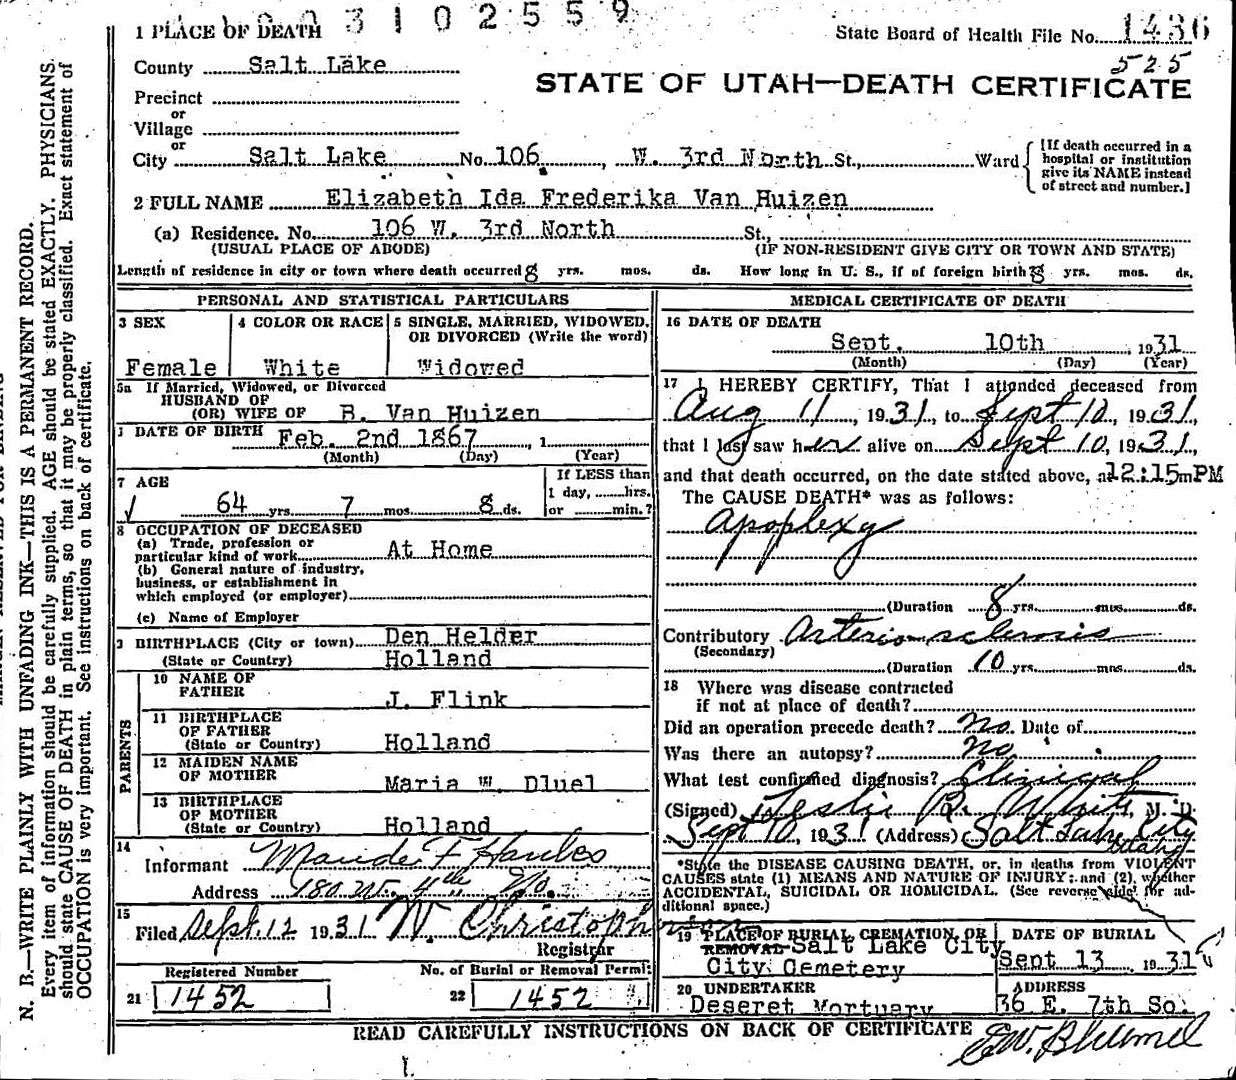 3 1 0 2 5 5 9
1 PLACE OF DEATH
State Board of Health File No. 1436
525
County Salt Lake
STATE OF UTAH—DEATH CERTIFICATE
Precinct
or
Village
or
City Salt Lake No. 106, W. 3rd North St., Ward
[If death occurred in a
hospital or institution
give its NAME instead
of street and number.]
2 FULL NAME Elizabeth Ida Frederika Van Huizen
(a) Residence. No. 106 W. 3rd North St.,
(USUAL PLACE OF ABODE) (IF NON-RESIDENT GIVE CITY OR TOWN AND STATE)
Length of residence in city or town where death occurred 8 yrs. mos. ds. How long in U. S., if of foreign birth 8 yrs. mos. ds.
PERSONAL AND STATISTICAL PARTICULARS
3 SEX
Female
4 COLOR OR RACE
White
5 SINGLE, MARRIED, WIDOWED,
OR DIVORCED (Write the word)
Widowed
5a If Married, Widowed, or Divorced
HUSBAND OF
(OR) WIFE OF B. Van Huizen
DATE OF BIRTH Feb. 2nd 1867, 1
(Month) (Day) (Year)
7 AGE
64 yrs. 7 mos. 8 ds.
If LESS than
1 day, hrs.
or min.?
8 OCCUPATION OF DECEASED
(a) Trade, profession or
particular kind of work At Home
(b) General nature of industry,
business, or establishment in
which employed (or employer)
(c) Name of Employer
9 BIRTHPLACE (City or town) Den Helder
(State or Country) Holland
PARENTS
10 NAME OF
FATHER J. Flink
11 BIRTHPLACE
OF FATHER
(State or Country) Holland
12 MAIDEN NAME
OF MOTHER Maria W. Dluel
13 BIRTHPLACE
OF MOTHER
(State or Country) Holland
14
Informant Maude F.
Address 180 W. 4th No.
15
Filed Sept. 12 1931 W. Christoph
Registrar
Registered Number
21 1452
No. of Burial or Removal Permit
22 1452
MEDICAL CERTIFICATE OF DEATH
16 DATE OF DEATH
Sept. 10th 1931
(Month) (Day) (Year)
17 I HEREBY CERTIFY, That I attended deceased from
Aug 11, 1931, to Sept 10, 1931,
that I last saw her alive on Sept 10, 1931,
and that death occurred, on the date stated above, at 12:15 m PM
The CAUSE DEATH* was as follows:
Apoplexy
(Duration 8 yrs. mos. ds.
Contributory Arteriosclerosis
(Secondary)
(Duration 10 yrs. mos. ds.
18 Where was disease contracted
if not at place of death?
Did an operation precede death? No. Date of
Was there an autopsy? No
What test confirmed diagnosis? Clinical
(Signed) Leslie R. White, M. D.
Sept 10, 1931 (Address) Salt Lake City
Utah
*State the DISEASE CAUSING DEATH, or, in deaths from VIOLENT
CAUSES state (1) MEANS AND NATURE OF INJURY; and (2), whether
ACCIDENTAL, SUICIDAL OR HOMICIDAL. (See reverse side for ad-
ditional space.)
19 PLACE OF BURIAL, CREMATION, OR
REMOVAL Salt Lake City
City Cemetery
DATE OF BURIAL
Sept 13 1931
20 UNDERTAKER
Deseret Mortuary
ADDRESS
36 E. 7th So.
READ CAREFULLY INSTRUCTIONS ON BACK OF CERTIFICATE
N. B.—WRITE PLAINLY WITH UNFADING INK—THIS IS A PERMANENT RECORD.
Every item of information should be carefully supplied. AGE should be stated EXACTLY. PHYSICIANS
should state CAUSE OF DEATH in plain terms, so that it may be properly classified. Exact statement of
OCCUPATION is very important. See instructions on back of certificate.